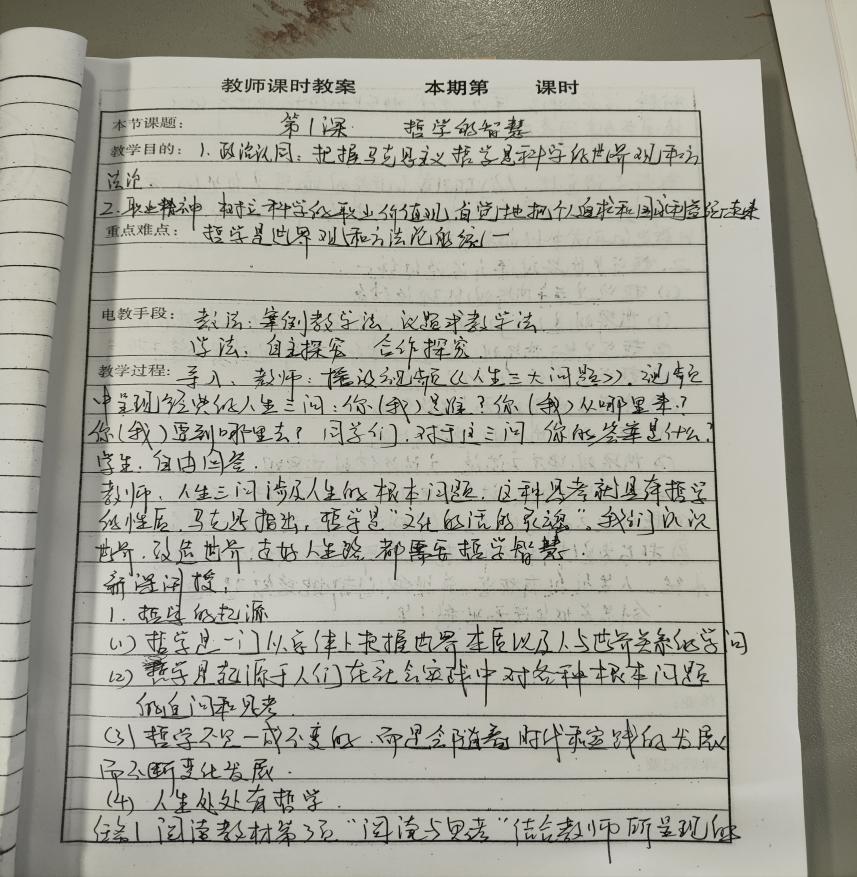 教师课时教案 本期第 课时
本节课题: 第1课 哲学的智慧
教学目的: 1.政治认同:把握马克思主义哲学是科学的世界观和方
法论.
2.职业精神 树立科学的职业价值观,自觉地把个人追求和国家利益统一起来
重点难点: 哲学是世界观和方法论的统一
电教手段: 教法:案例教学法.议题式教学法.
学法:自主探究 合作探究.
教学过程: 导入、教师:播放视频《人生三大问题》.视频
中呈现经典的人生三问:你(我)是谁?你(我)从哪里来?
你(我)要到哪里去?同学们,对于这三问,你的答案是什么?
学生:自由回答.
教师:人生三问涉及人生的根本问题.这种思考就具有哲学
的性质.马克思指出,哲学是“文化的活的灵魂”。我们认识
世界、改造世界 走好人生路 都需要哲学智慧.
新课讲授:
1.哲学的起源
(1)哲学是一门从总体上把握世界本质以及人与世界关系的学问
(2)哲学是起源于人们在社会实践中对各种根本问题
的追问和思考.
(3)哲学不是一成不变的.而是会随着时代和实践的发展
而不断变化发展.
(4)人生处处有哲学.
任务1 阅读教材第3页“阅读与思考”结合教师所呈现的